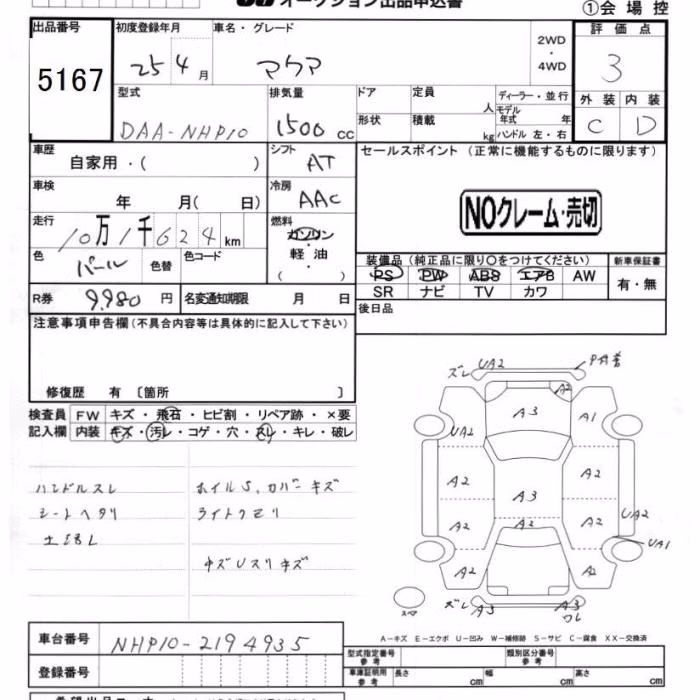 オークション出品申込書
①会場控
出品番号
5167
初度登録年月
25 4月
車名・グレード
アクア
2WD
・
4WD
評価点
3
型式
DAA-NHP10
排気量
1500cc
ドア
形状
定員
人
積載
kg
ディーラー・並行
モデル年式 年
ハンドル 左・右
外装 内装
C D
車歴
自家用・( )
シフト
AT
セールスポイント (正常に機能するものに限ります)
NOクレーム・売切
車検
年 月( 日)
冷房
AAC
走行
10万1千624km
燃料
ガソリン
軽油
( )
色
パール
色替
色コード
装備品 (純正品に限り○をつけてください)
PS PW ABS エアB AW
SR ナビ TV カワ
新車保証書
有・無
R券 9,980円
名変通知期限 月 日
後日品
注意事項申告欄(不具合内容等は具体的に記入して下さい)
修復歴 有 〔箇所 〕
検査員
記入欄
FW キズ・飛石・ヒビ割・リペア跡・×要
内装 キズ・汚レ・コゲ・穴・スレ・キレ・破レ
ハンドルスレ
シートヘタリ
ホイルS、カバーキズ
ライトクモリ
ズレ UA2
A2
A3
A1
UA2
A2
A3
A2
A2
A2
A2
UA2
UA1
A2
A2
ズレ A3
ワレ
スペア
A－キズ E－エクボ U－凹み W－補修跡 S－サビ C－腐食 XX－交換済
車台番号
NHP10-2194935
登録番号
型式指定番号
参考
類別区分番号
参考
車庫証明用
参考
長さ cm
幅 cm
高さ cm